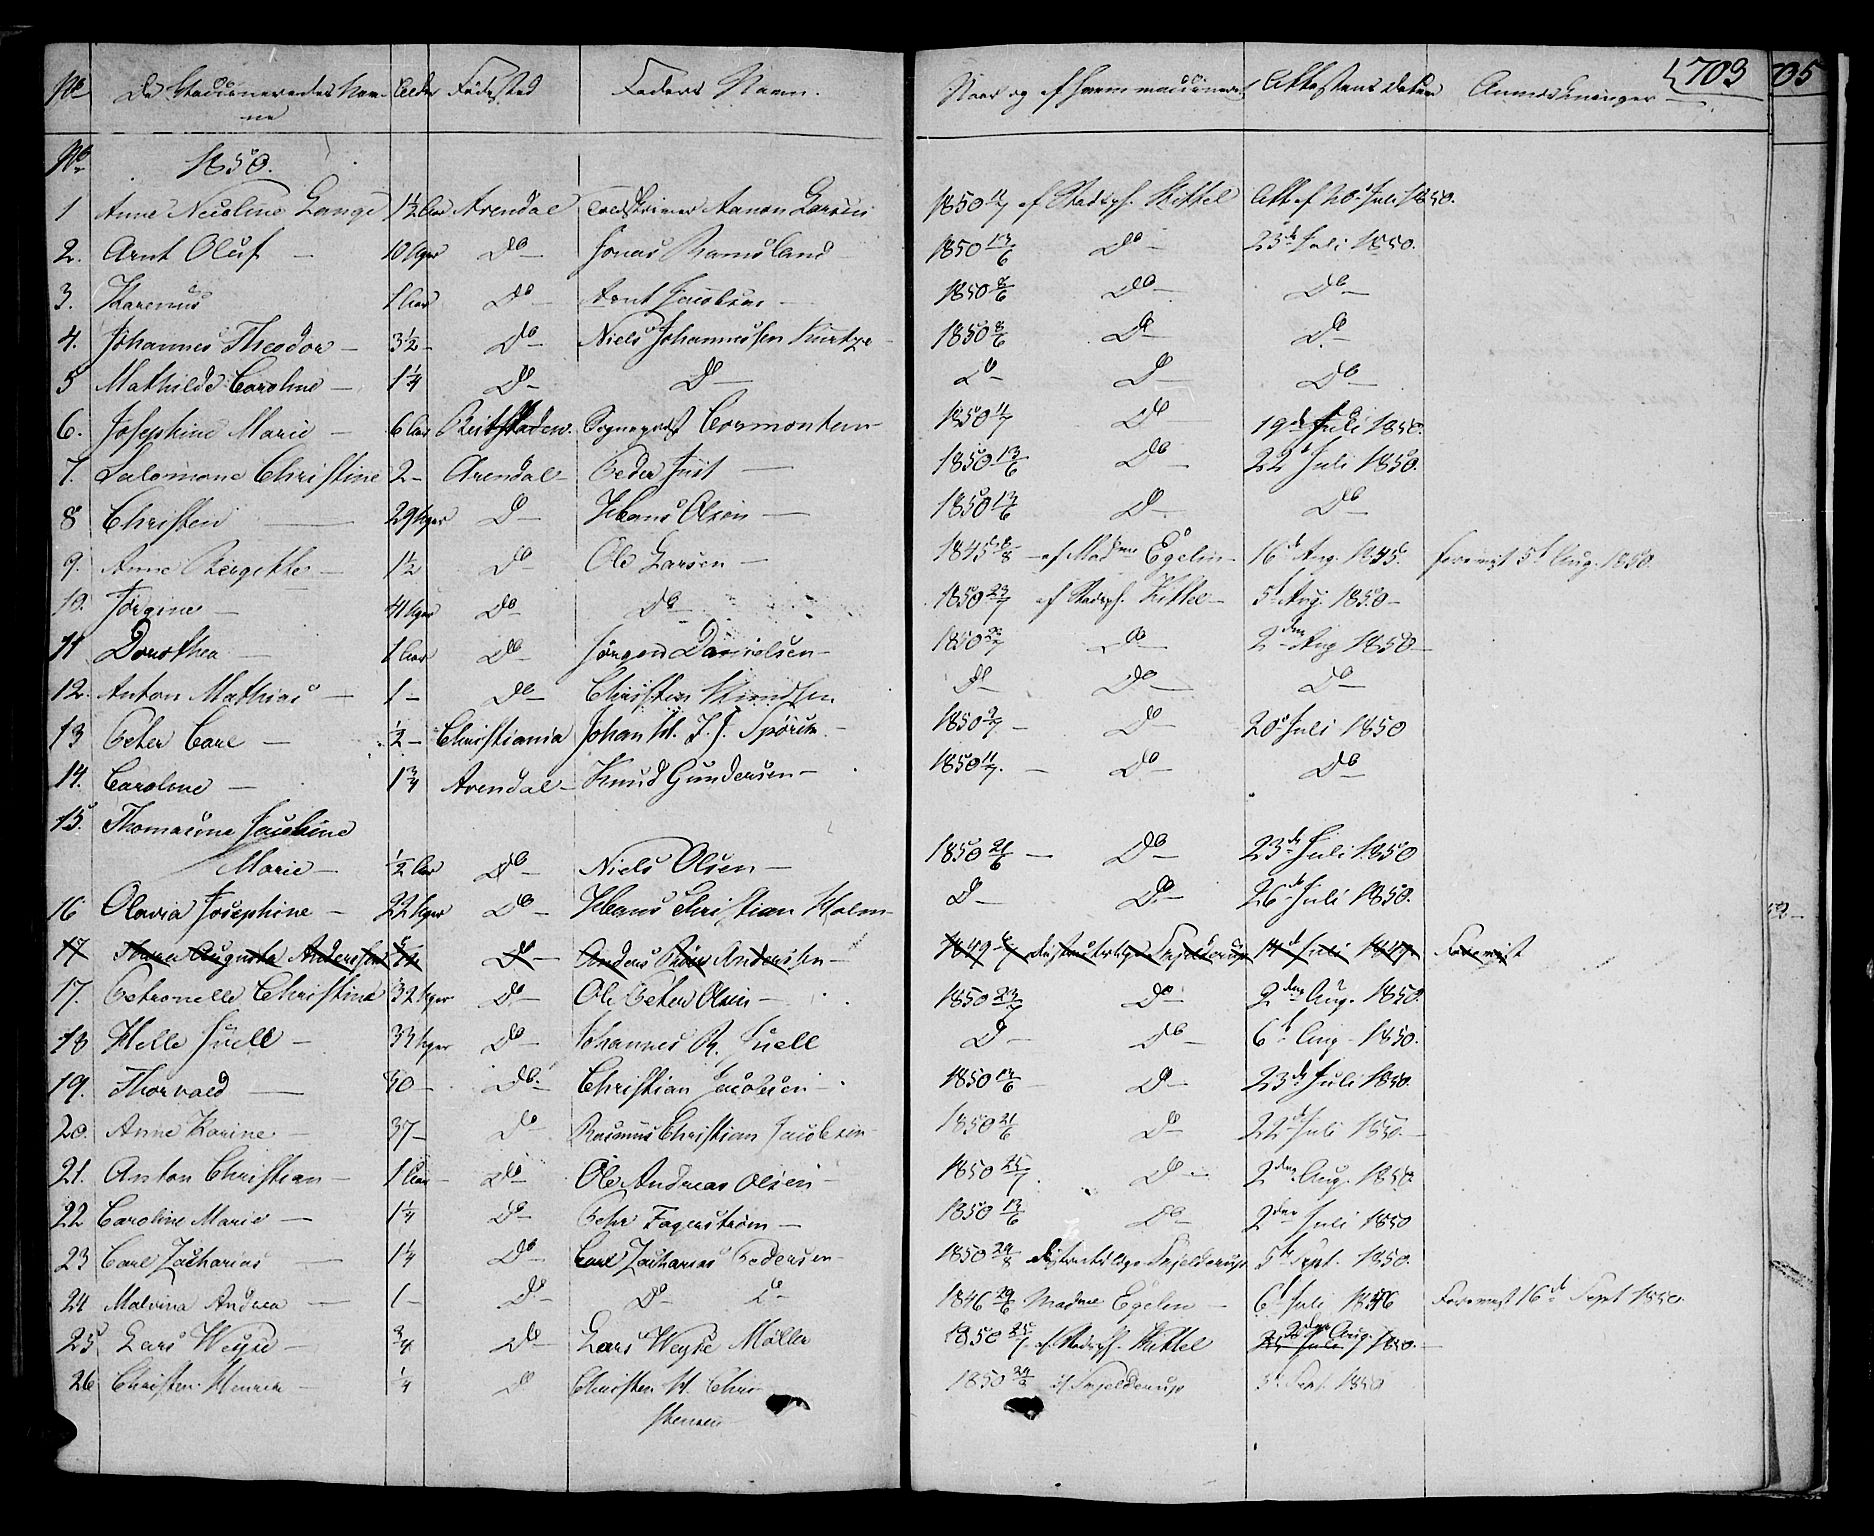 No De Vaccineredes Nav- Alder Fødested Faders Navn. Naar og af hvem vaccineret Attestens datum Anmærkninger 703 705
ne
No 1850.
1 Anne Nicoline Lange 1½ Aar Arendal Aanon Larsen 1850 af Stadsph. Kittel Att. af 20de Juli 1850.
2. Arnt Oluf — 10 Uger Do — Jonas Ramsland 1850 13/6 Do — 23de Juli 1850.
3. Karenus 1 Aar Do — Arnt Jacobsen — 1850 8/6 Do — Do —
4. Johannes Theodor — 3½ — Do — Niels Johannessen 1850 8/6 Do — Do —
5 Mathilde Caroline — 1¼ Do — Do — Do — Do — Do —
6. Josephine Marie — 6 Aar Sognepræst 1850 Do 19de Juli 1850.
7. Salomone Christine 2 — Arendal — Peder Just — 1850 13/6 Do — 22de Juli 1850.
8 Christen — 29 Uger Do — Hans Olsen — 1850 13/6 Do — Do —
9. Anne Bergithe — 1½ Do — Ole Larsen — 1845 8/8 — af Madme Egelin — 16de Aug. 1845. forevist 5te Aug. 1850.
10. Jørgine — 41 Uger Do — Do — 1850 23/7 af Stadsph. Kittel — 5te Aug. 1850 —
11 Dorothea — 1 Aar Do — Jørgen Danielsen — 1850 Do — 2den Aug 1850 —
12. Anton Mathias — 1 — Do — Christen Knudsen Do — Do — Do —
13 Peter Carl — ½ — Christiania Johan 1850 — Do — 20de Juli 1850
14. Caroline — 1¾ Arendal — Knud Gundersen — 1850 11/7. — Do — Do —
15. Thomasine Jacobine
Marie — ½ Aar Do — Niels Olsen — 1850 21/6 — Do — 23de Juli 1850
16 Olavia Josephine — 22 Uger Do — Hans Christian Holm — Do — Do — 26de Juli 1850.
17 Augusta Anderssen Do — Anders Anderssen — 1849 Districtslæge Fejelderup 14de Juli 1849 Forevist
17. Petronelle Christine 32 Uger Do — Ole Peter Olsen — 1850 23/7 Do — 2den Aug. 1850.
18 Helle Juell — 33 Uger Do — Johannes R. Juell Do — Do — 6te Aug — 1850.
19. Thorvald — 30 — Do. Christian Jacobsen — 1850 13/6 — Do — 23de Juli 1850.
20. Anne Karine — 37 — Do — Rasmus Christian Jacobsen — 1850 21/6 Do — 22de Juli 1850. —
21. Anton Christian — 1 Aar — Do — Ole Andreas Olsen — 1850 25/7. Do — 2den Aug. 1850.
22 Caroline Marie — 1¼ Do — Pehr Fagerstrøm — 1850 13/6 Do — 2den Juli 1850
23 Carl Zacharias — 1¼ Do — Carl Zacharias Pedersen — 1850 29/8 Districtslæge Fejelderup 5te Sept. 1850.
24 Malvina Andrea — 1 — Do — Do — Do — 1846 29/6 Madme Egelin — 6te Juli 1846 Forevist 16de Sept 1850.
25 Lars Weyse — ¾ Do — Lars Weyse Møller 1850 25/7 af Stadsph. Kittel 2den Aug. 1850. —
26 Christen Henrik — ¼ Do Christen H. Chri- 1850 af Fejelderup 5te Sept. 1850
stensen